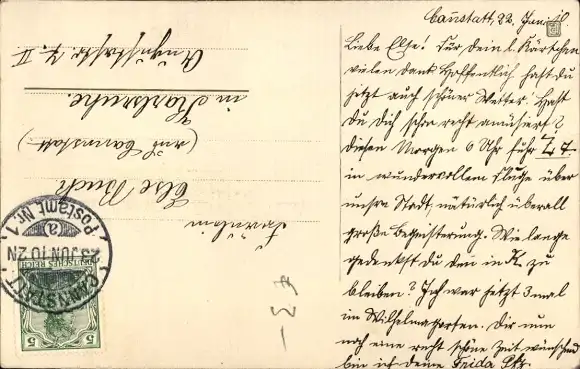 Cannstatt, 22. Juni 10
Liebe Else! Für Dein l. Kärtchen
vielen Dank. Hoffentlich hast du
jetzt auch schönes Wetter! Hast
Du Dich schon recht amüsiert?
Diesen Morgen 6 Uhr fuhr Z. I.
in wundervollem Fluge über
unsre Stadt, natürlich überall
große Begeisterung. Wie lange
gedenkst du den in K. zu
bleiben? Ich war jetzt 3 mal
im Wilhelmagarten. Dir nun
noch eine recht schöne Zeit wünschend
bin ich deine Frida
Fräulein
Else Buch
(aus Cannstatt)
in Karlsruhe.
Augustastr. 7. II
CANNSTATT
23 JUN 10 2-N
(a)
Postamt Nr. 1
DEUTSCHES REICH
5 5